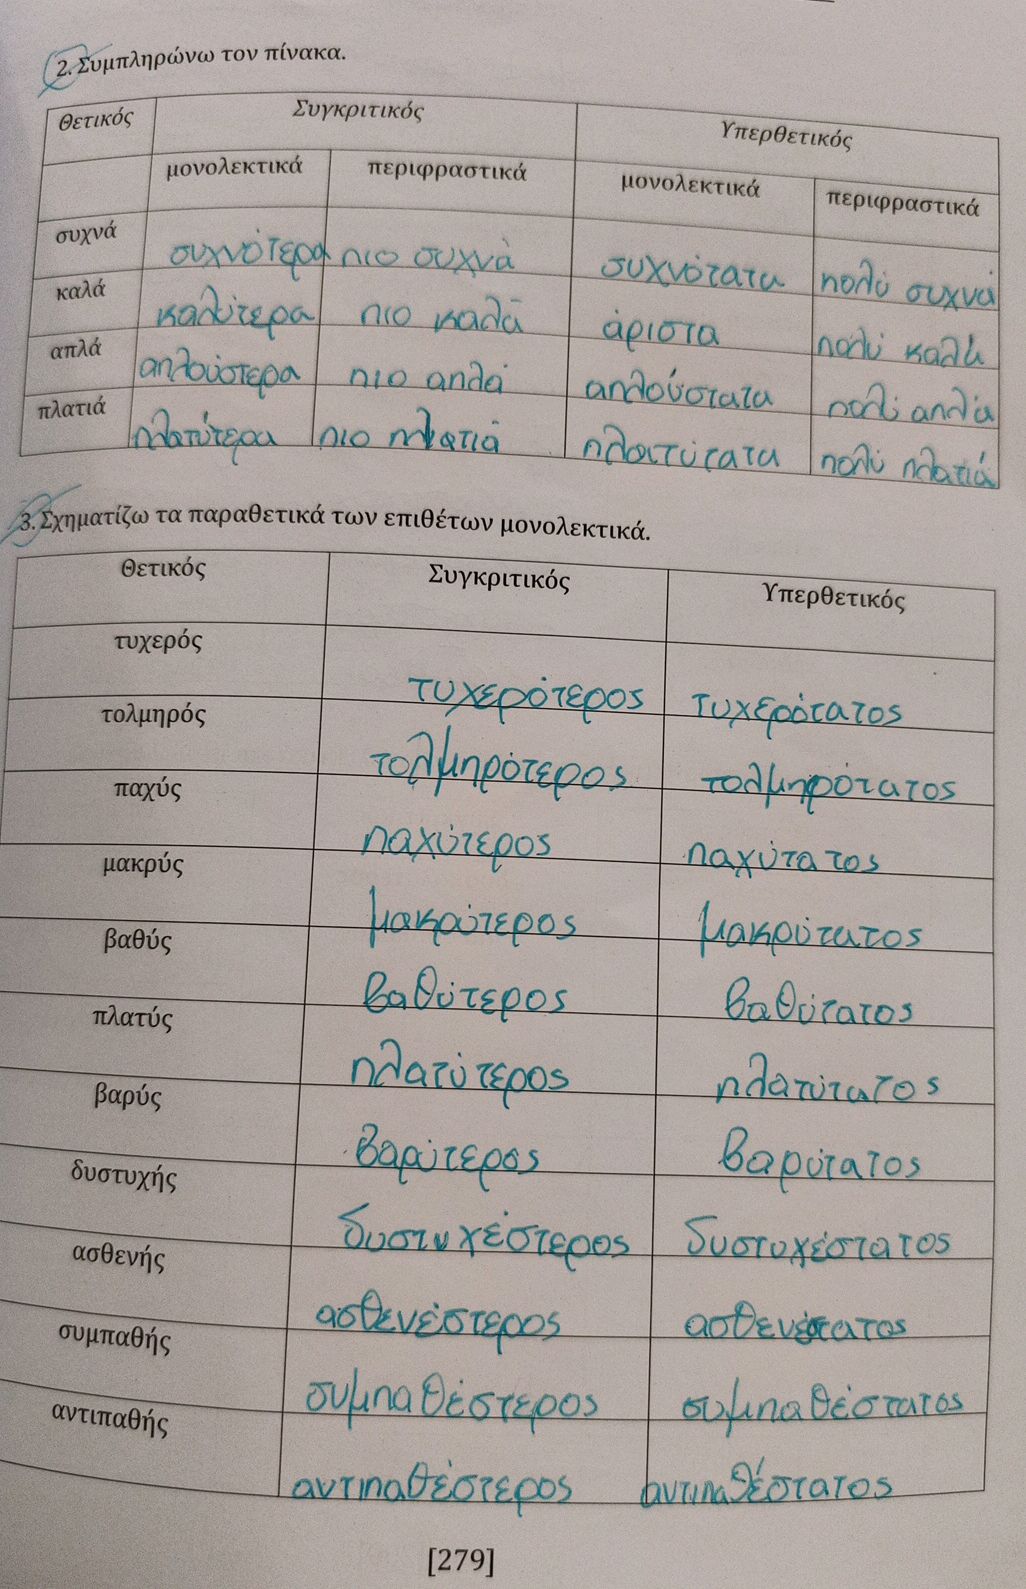 2. Συμπληρώνω τον πίνακα.
Θετικός Συγκριτικός Υπερθετικός
μονολεκτικά περιφραστικά μονολεκτικά περιφραστικά
συχνά συχνότερα πιο συχνά συχνότατα πολύ συχνά
καλά καλύτερα πιο καλά άριστα πολύ καλά
απλά απλούστερα πιο απλά απλούστατα πολύ απλά
πλατιά πλατύτερα πιο πλατιά πλατύτατα πολύ πλατιά
3. Σχηματίζω τα παραθετικά των επιθέτων μονολεκτικά.
Θετικός Συγκριτικός Υπερθετικός
τυχερός τυχερότερος τυχερότατος
τολμηρός τολμηρότερος τολμηρότατος
παχύς παχύτερος παχύτατος
μακρύς μακρύτερος μακρύτατος
βαθύς βαθύτερος βαθύτατος
πλατύς πλατύτερος πλατύτατος
βαρύς βαρύτερος βαρύτατος
δυστυχής δυστυχέστερος δυστυχέστατος
ασθενής ασθενέστερος ασθενέστατος
συμπαθής συμπαθέστερος συμπαθέστατος
αντιπαθής αντιπαθέστερος αντιπαθέστατος
[279]